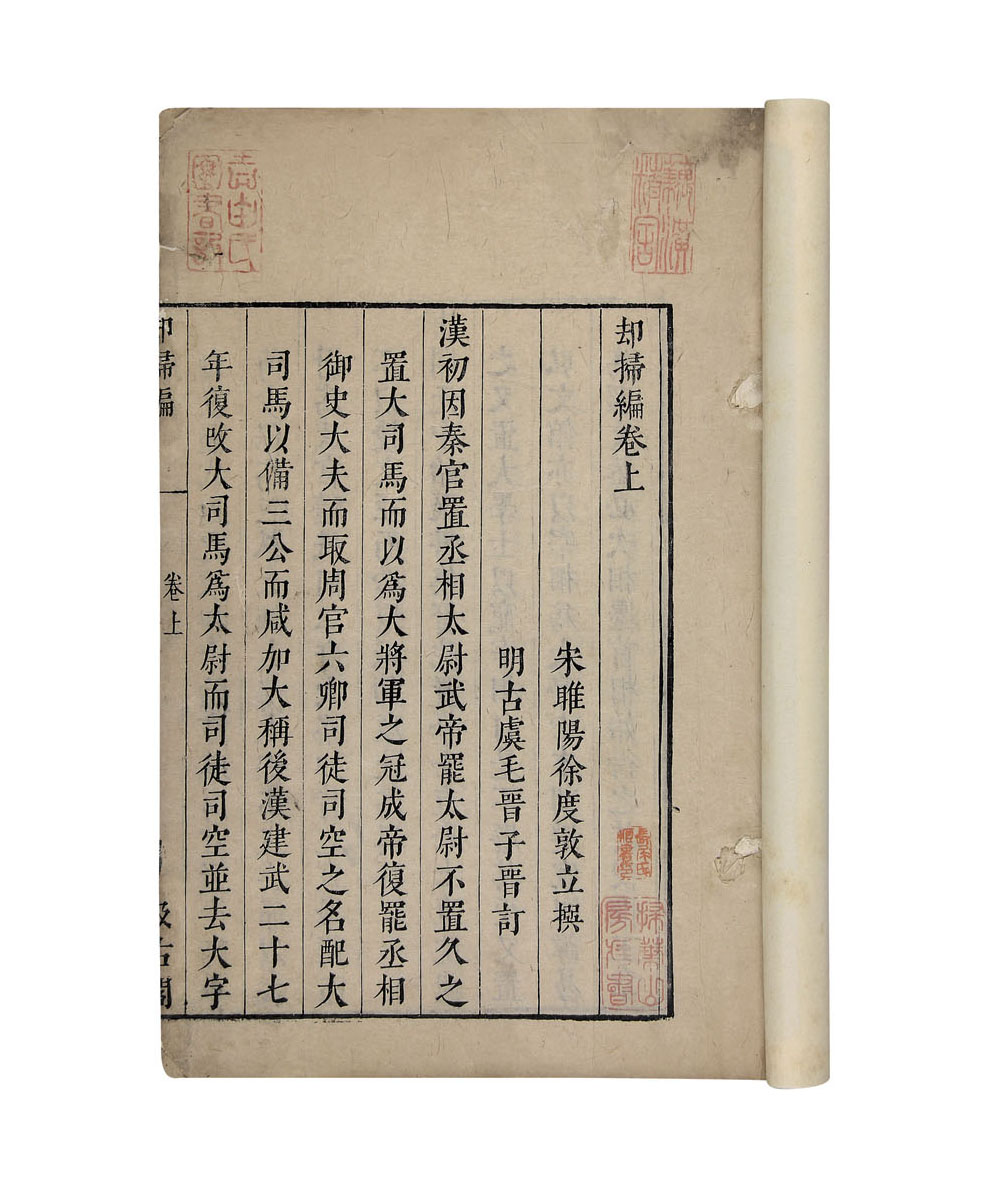 却掃編卷上
宋睢陽徐度敦立撰
明古虞毛晉子晉訂
漢初因秦官置丞相太尉武帝罷太尉不置久之
置大司馬而以爲大將軍之冠成帝復罷丞相
御史大夫而取周官六卿司徒司空之名配大
司馬以備三公而咸加大稱後漢建武二十七
年復改大司馬爲太尉而司徒司空並去大字
却掃編
卷上
汲古閣
掃葉山
房藏書